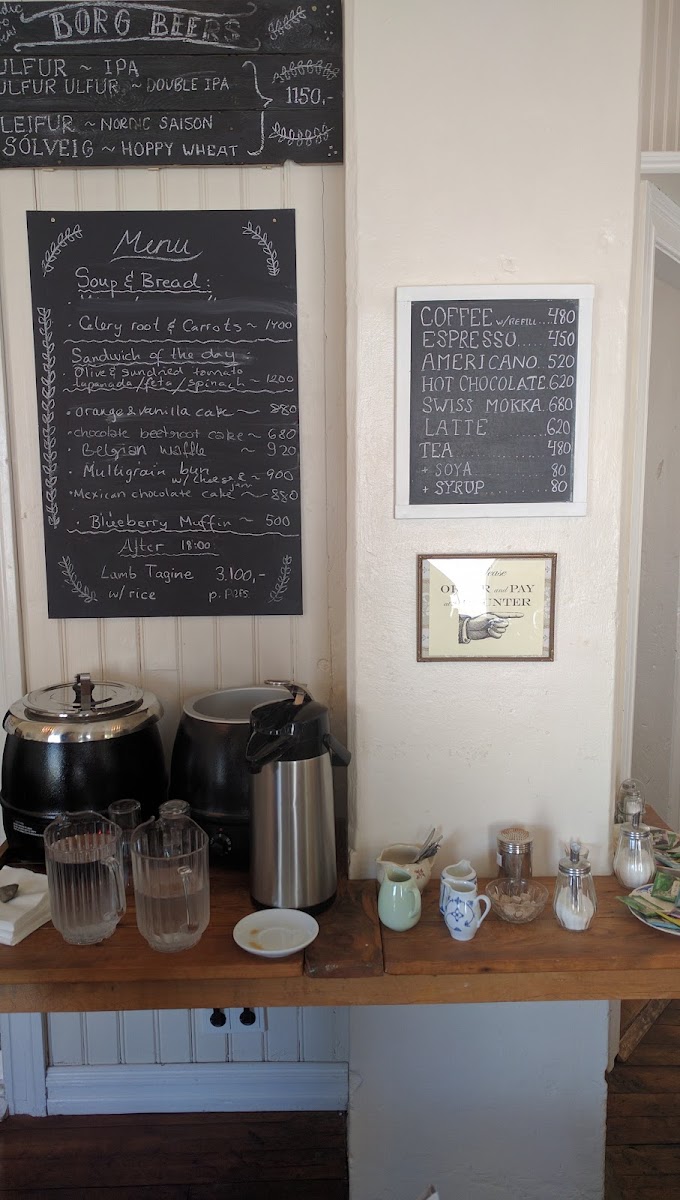 BORG BEERS
ULFUR ~ IPA
ULFUR ULFUR ~ DOUBLE IPA
1150,-
LEIFUR ~ NORDIC SAISON
SÓLVEIG ~ HOPPY WHEAT
Menu
Soup & Bread:
· Celery root & Carrots ~ 1400
Sandwich of the day:
· Olive & sundried tomato
tapanada/feta/spinach ~ 1200
· Orange & vanilla cake ~ 880
· chocolate beetroot cake ~ 680
· Belgian waffle ~ 920
· Multigrain bun
w/ cheese & jam ~ 900
· Mexican chocolate cake ~ 880
· Blueberry Muffin ~ 500
After 18:00
Lamb Tagine 3.100,-
w/ rice
COFFEE w/REFILL....480
ESPRESSO.....450
AMERICANO..520
HOT CHOCOLATE.620
SWISS MOKKA..680
LATTE ........620
TEA ..........480
+ SOYA ........80
+ SYRUP ........80
ORDER and PAY
COUNTER